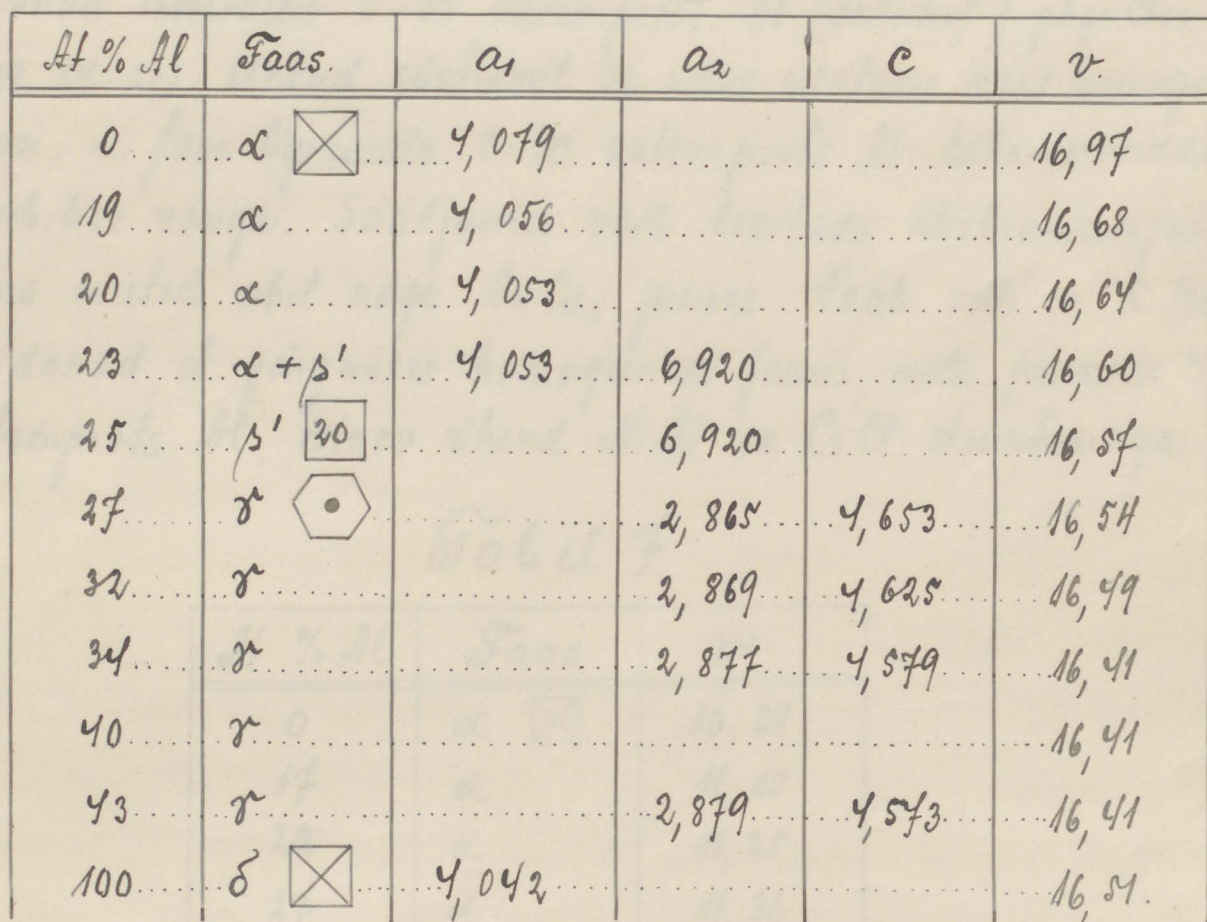 At % Al Faas. a₁ a₂ c v.
0 α 4,079 16,97
19 α 4,056 16,68
20 α 4,053 16,64
23 α + β' 4,053 6,920 16,60
25 β' 20 6,920 16,57
27 γ 2,865 4,653 16,54
32 γ 2,869 4,625 16,49
34 γ 2,877 4,579 16,41
40 γ 16,41
43 γ 2,879 4,573 16,41
100 δ 4,042 16,51.